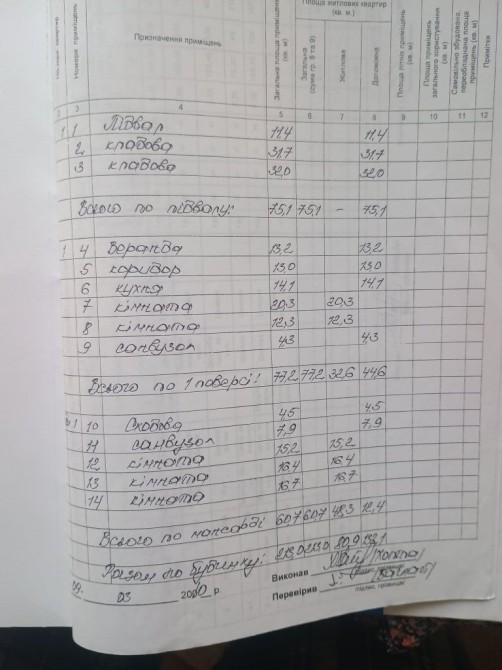 Номери приміщень
Призначення приміщень
Загальна площа приміщень (кв. м)
Площа житлових квартир (кв. м.)
Загальна (сума гр. 8 та 9)
Житлова
Допоміжна
Площа літніх приміщень (кв. м)
Площа приміщень загального користування (кв. м)
Самовільно збудована, переобладнана площа приміщень (кв. м)
Примітки
2 3 4 5 6 7 8 9 10 11 12
1 1 підвал 11,4 11,4
2 кладова 31,7 31,7
3 кладова 32,0 32,0
Всього по підвалу: 75,1 75,1 – 75,1
1 4 веранда 13,2 13,2
5 коридор 13,0 13,0
6 кухня 14,1 14,1
7 кімната 20,3 20,3
8 кімната 12,3 12,3
9 санвузол 4,3 4,3
Всього по 1 поверсі: 77,2 77,2 32,6 44,6
1 10 Сходова 4,5 4,5
11 санвузол 7,9 7,9
12 кімната 15,2 15,2
13 кімната 16,4 16,4
14 кімната 16,7 16,7
Всього по мансарді 60,7 60,7 48,3 12,4
Разом по будинку: 213,0 213,0 80,9 132,1
09. 03 2000 р.
Виконав
Перевірив
підпис, прізвище